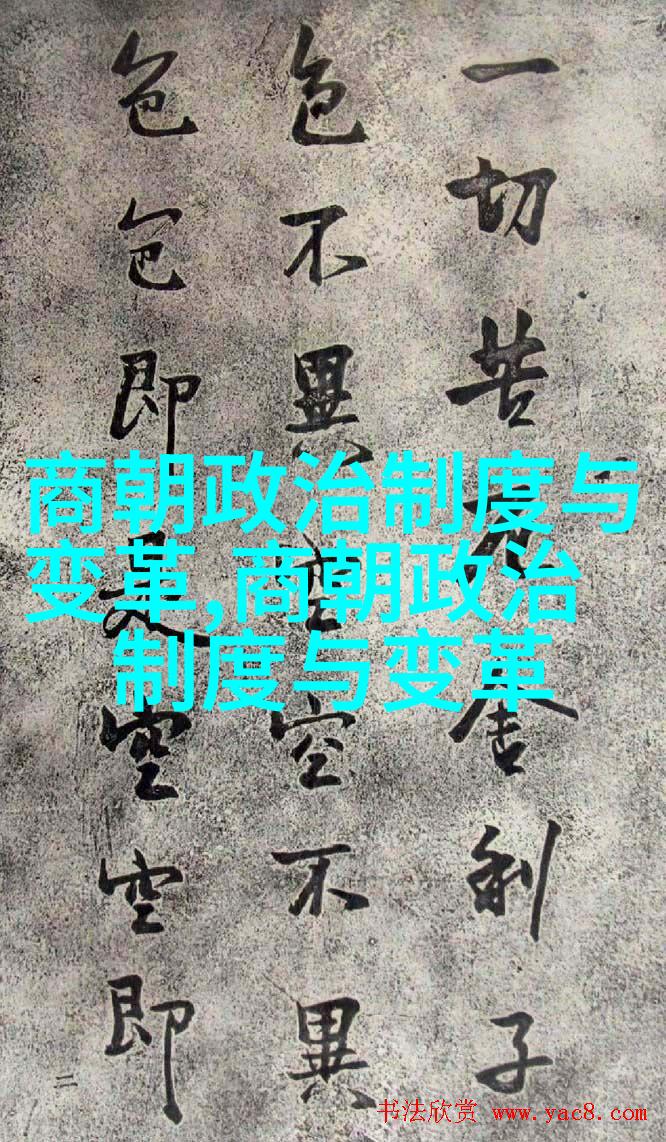 一切苦厄舍利子
色不異空空不異
色色即是空空即
二
商朝政治制度与
变革,商朝政治
制度与变革
书法欣赏 www.yac8.com